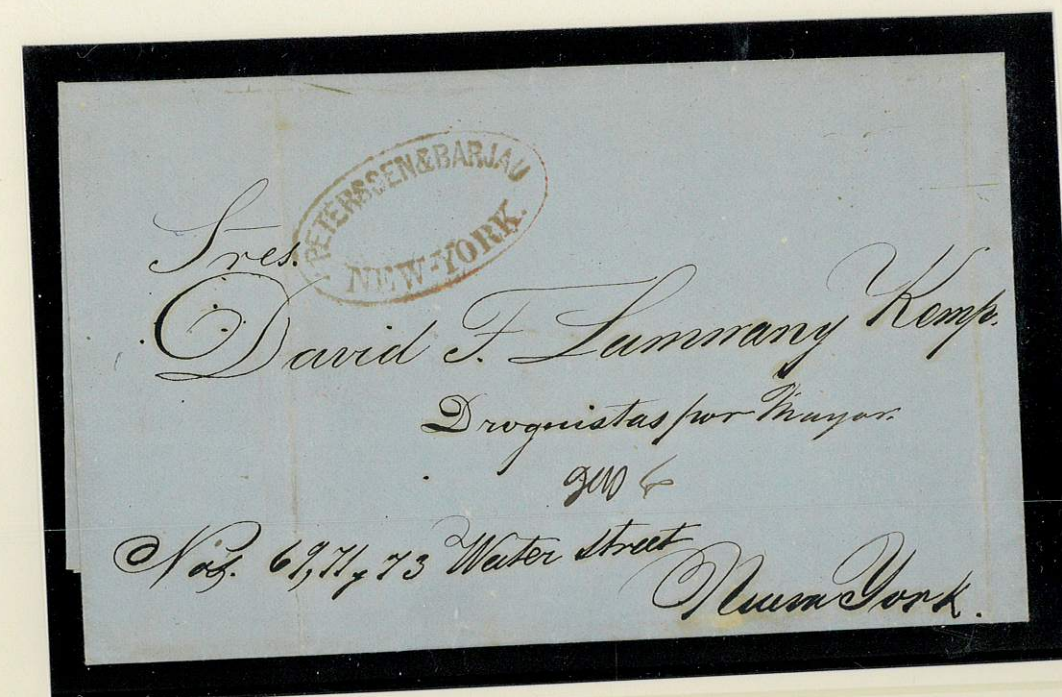 PETERSSEN & BARJAU
NEW-YORK.
Sres.
David F. Lanmany Kemp.
Droguistas por Mayor.
Nos. 69, 71, y 73 Water Street
Nueva York.